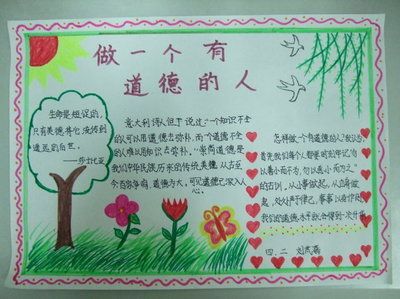 做一个有
道德的人
生命是短促的,
只有美德将它流传到
遥远的后世。
——莎士比亚
意大利诗人但丁说过:"一个知识不全
的人可以用道德去弥补,而一个道德不全
的人难以用知识去弥补。"崇尚道德是
我们中华民族历来的传统美德,从古至
今百家争鸣,道德为大,可见道德已深入人
心。
怎样做一个有道德的人?我认为,
首先我们每个人都要时刻牢记"勿
以善小而不为,勿以恶小而为之"
的古训,从小事做起,从自身做
起,处处严于律己,事事以身作则,
我们的道德水平就会得到一次升华。
四、二 刘